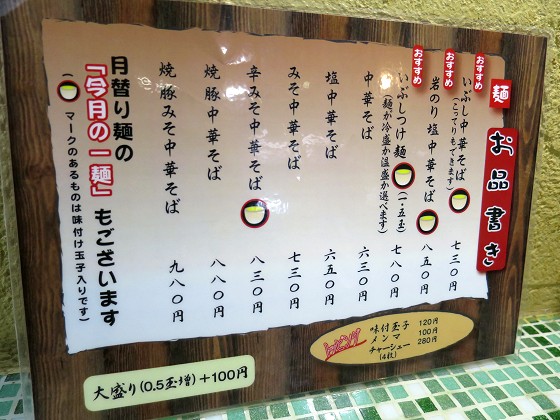 お品書き
麺
おすすめ
いぶし中華そば 七三〇円
(こってりもできます)
おすすめ
岩のり塩中華そば 八五〇円
おすすめ
いぶしつけ麺 (一・五玉) 七八〇円
(麺が冷盛か温盛か選べます)
中華そば 六三〇円
塩中華そば 六五〇円
みそ中華そば 七三〇円
辛みそ中華そば 八三〇円
焼豚中華そば 八八〇円
焼豚みそ中華そば 九八〇円
月替り麺の
「今月の一麺」もございます
( マークのあるものは味付け玉子入りです)
トッピング
味付玉子 120円
メンマ 100円
チャーシュー 280円
(4枚)
大盛り(0.5玉増)+100円